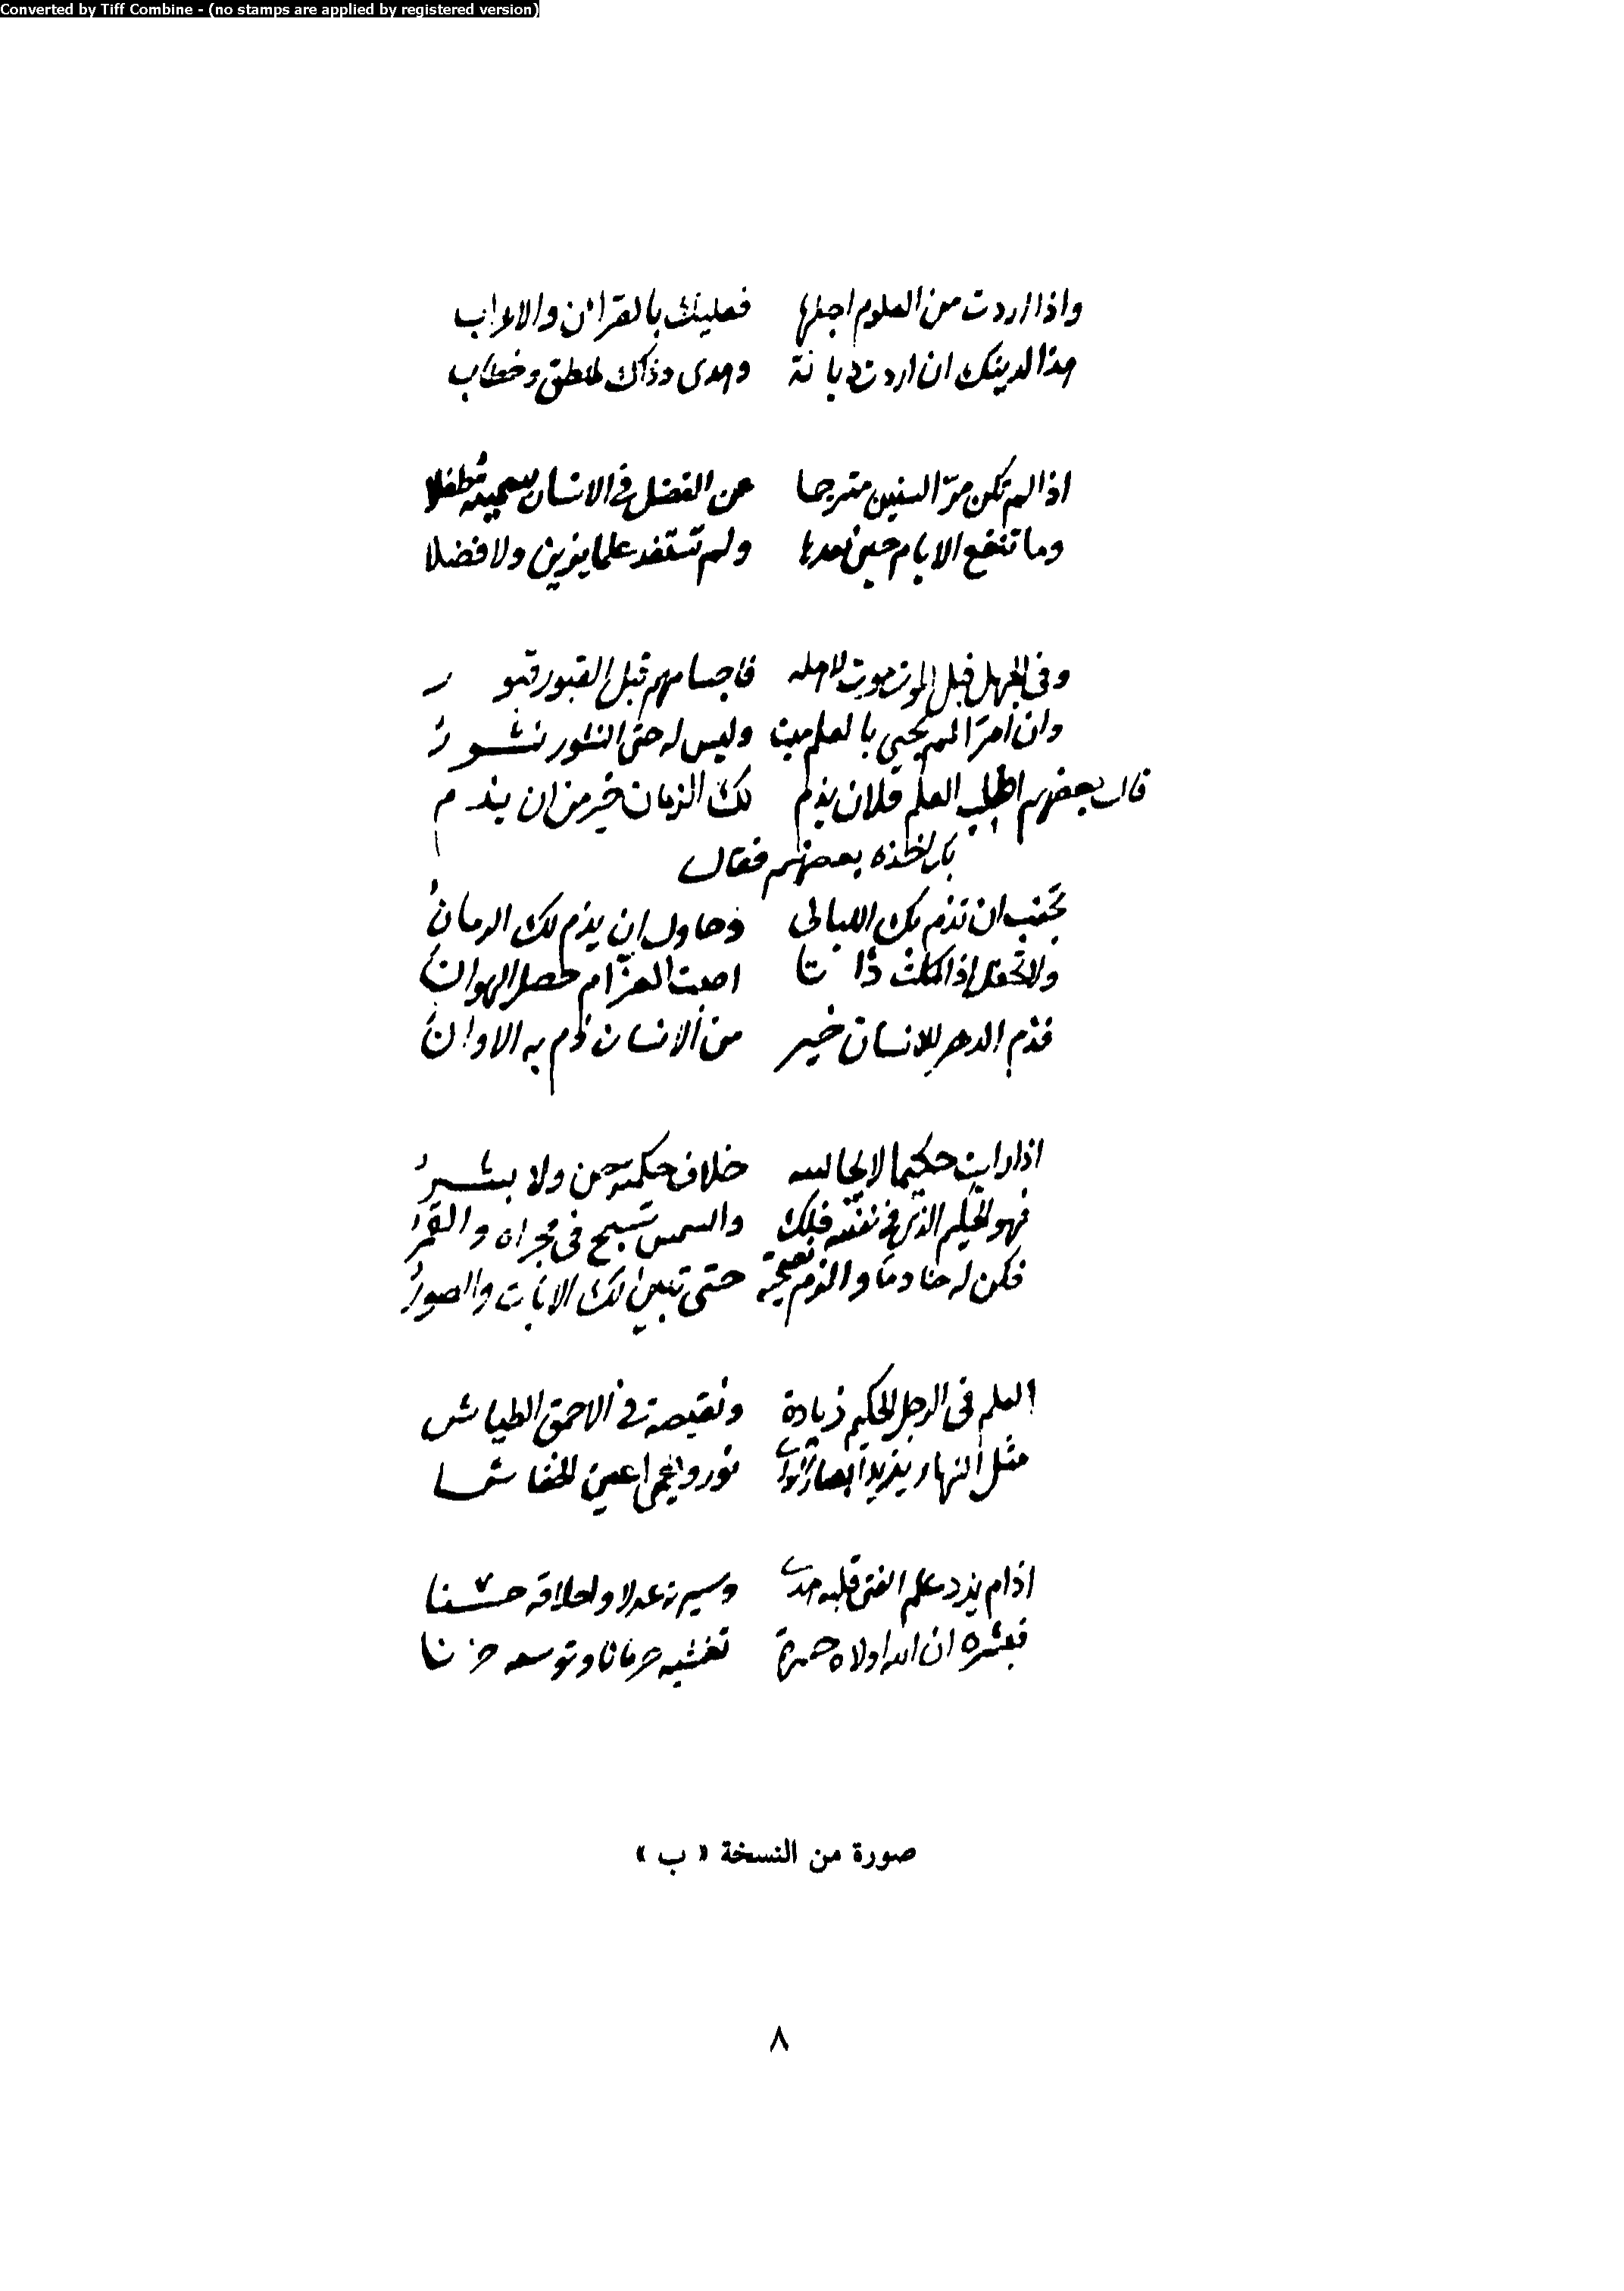 Converted by Tiff Combine - (no stamps are applied by registered version)
واذا اردت من العلوم اجلها فعليك بالقران والاعراب
هذا لدينك ان اردت ديانة وهدى وذاك لمنطق وخطاب
اذا لم تكن مرّ السنين مترجما عن الفضل في الانسان سميته طفلا
وما تنفع الايام حين تعدها ولم تستفد علما يزين ولا فضلا
وفى الجهل قبل الموت موت لاهله فاجسامهم قبل القبور قبور
وان امرًا لم يحيى بالعلم ميت وليس له حتى النشور نشور
قال بعضهم اطلب العلم فلان يذم لك الزمان خير من ان يذم
بك اخذه بعضهم فقال
تجنب ان تذم بك الليالى وحاول ان يذم لك الزمان
ولا تحفل اذا كملت ذاتا اصبت العز ام حصل الهوان
فذم الدهر للانسان خير من الانسان ذم به الاوان
اذا رايت حكيما لا يجالسه خلاف حكمته جن ولا بشر
فهو الحكيم الذى فى نفسه فلك والشمس تسبح فى مجراه والقمر
فكن له خادما والزم نصيحته حتى تبين لك الايات والصور
العلم فى الرجل الحكيم زيادة ونقيصة فى الاحمق الطياش
مثل النهار يزيد ابصار الورى نورا ويعمى اعين الخفاش
اذا لم يزد علم الفتى قلبه هدى وسيرته عدلا واخلاقه حسنا
فبشره ان الله اولاه حسرة تغشيه حرمانا وتوسعه حزنا
صورة من النسخة « ب »
٨